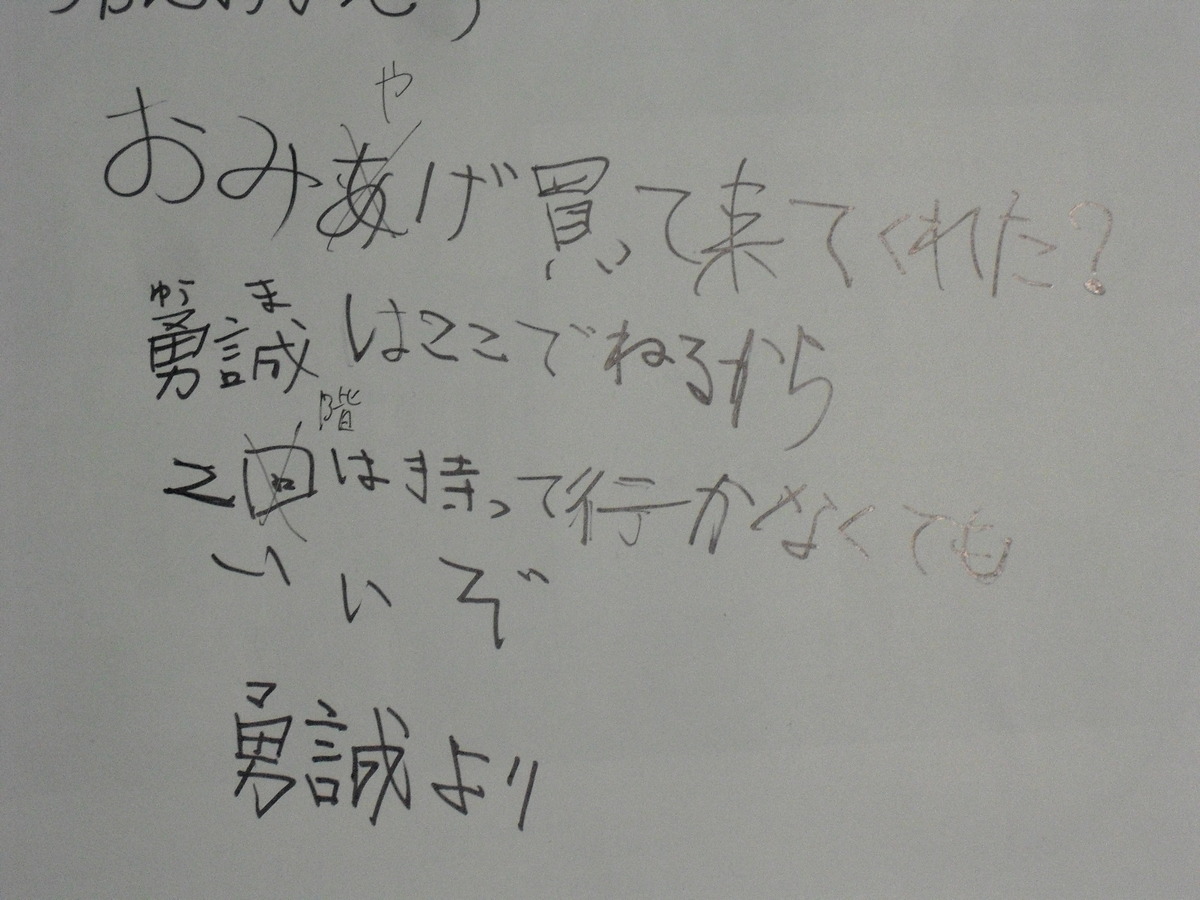 や
おみあげ買って来てくれた?
ゆう ま
勇誠はここでねるから
階
2回は持って行かなくても
いいぞ
勇誠より